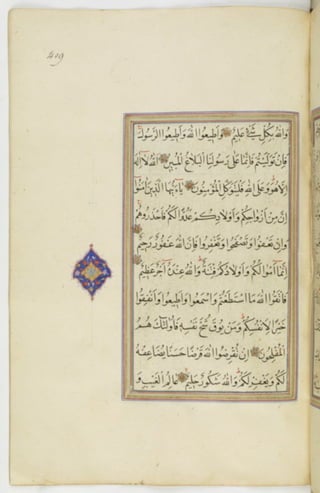 409
والله بكل شيء عليم واطيعوا الله واطيعوا الرسول
فان توليتم فانما على رسولنا البلاغ المبين الله لا اله
الا هو وعلى الله فليتوكل المؤمنون يا ايها الذين امنوا
ان من ازواجكم واولادكم عدوا لكم فاحذروهم
وان تعفوا وتصفحوا وتغفروا فان الله غفور رحيم
انما اموالكم واولادكم فتنة والله عنده اجر عظيم
فاتقوا الله ما استطعتم واسمعوا واطيعوا وانفقوا
خيرا لانفسكم ومن يوق شح نفسه فاولئك هم
المفلحون ان تقرضوا الله قرضا حسنا يضاعفه
لكم ويغفر لكم والله شكور حليم عالم الغيب و